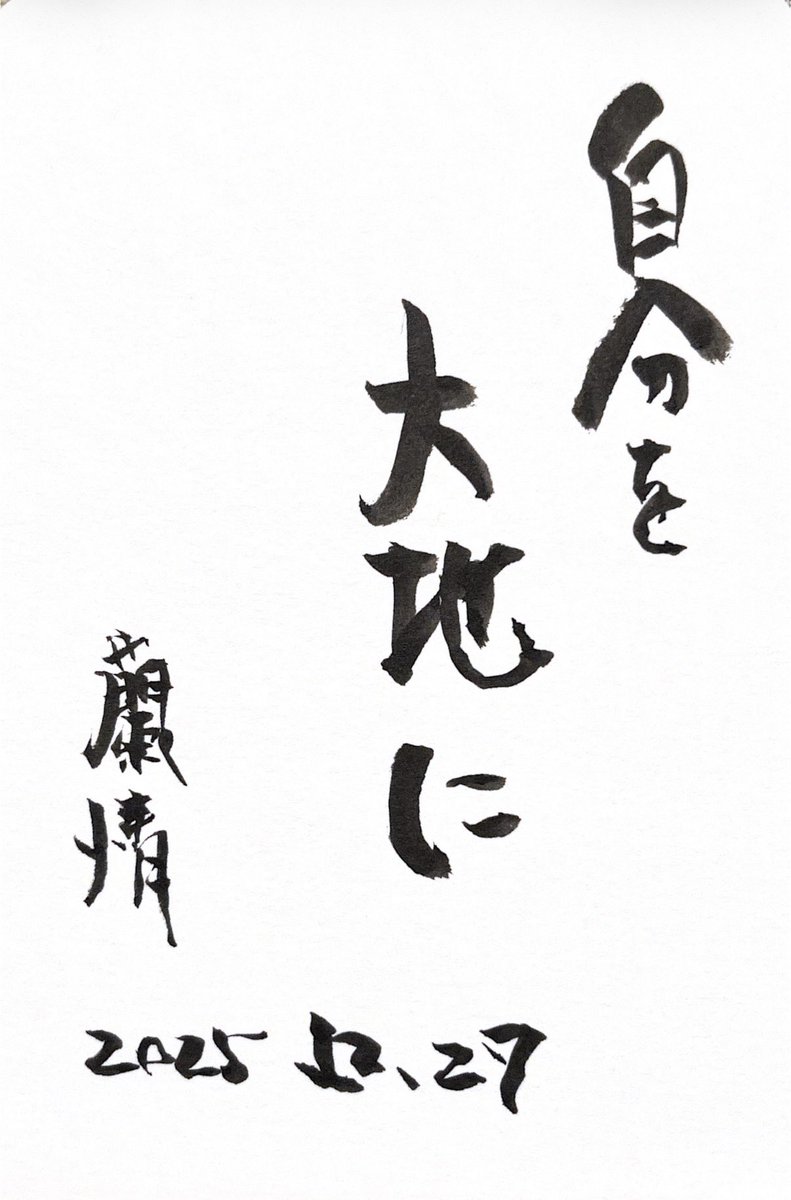 自分を
大地に
蘭情
2025 12.27